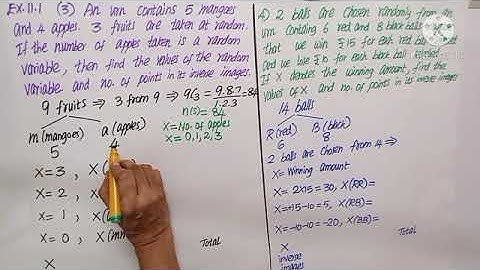 EX.11.1 (3) An urn contains 5 mangoes
and 4 apples. 3 fruits are taken at random.
If the number of apples taken is a random
variable, then find the values of the random
variable and no. of points in its inverse images.
9 fruits ⇒ 3 from 9 ⇒ 9C3 = 9.8.7/1.2.3 = 84
n(s) = 84
m(mangoes) a(apples)
5 4
X = No. of apples
X = 0,1,2,3
X = 3, X(
X = 2, X(
X = 1, X(
X = 0, X(mm
Total
X
4) 2 balls are chosen randomly from an
urn containing 6 red and 8 black balls
that we win ₹15 for each red ball
and we lose ₹10 for each black ball selected.
If X denotes the winning amount, find the
values of X and no. of points in its inverse images
14 balls
R(red) B(black)
6 8
2 balls are chosen from 14 ⇒
X = Winning amount
X = 2X15 = 30, X(RR) =
X = +15-10 = 5, X(RB) =
X = -10-10 = -20, X(BB) =
X Total
inverse
images